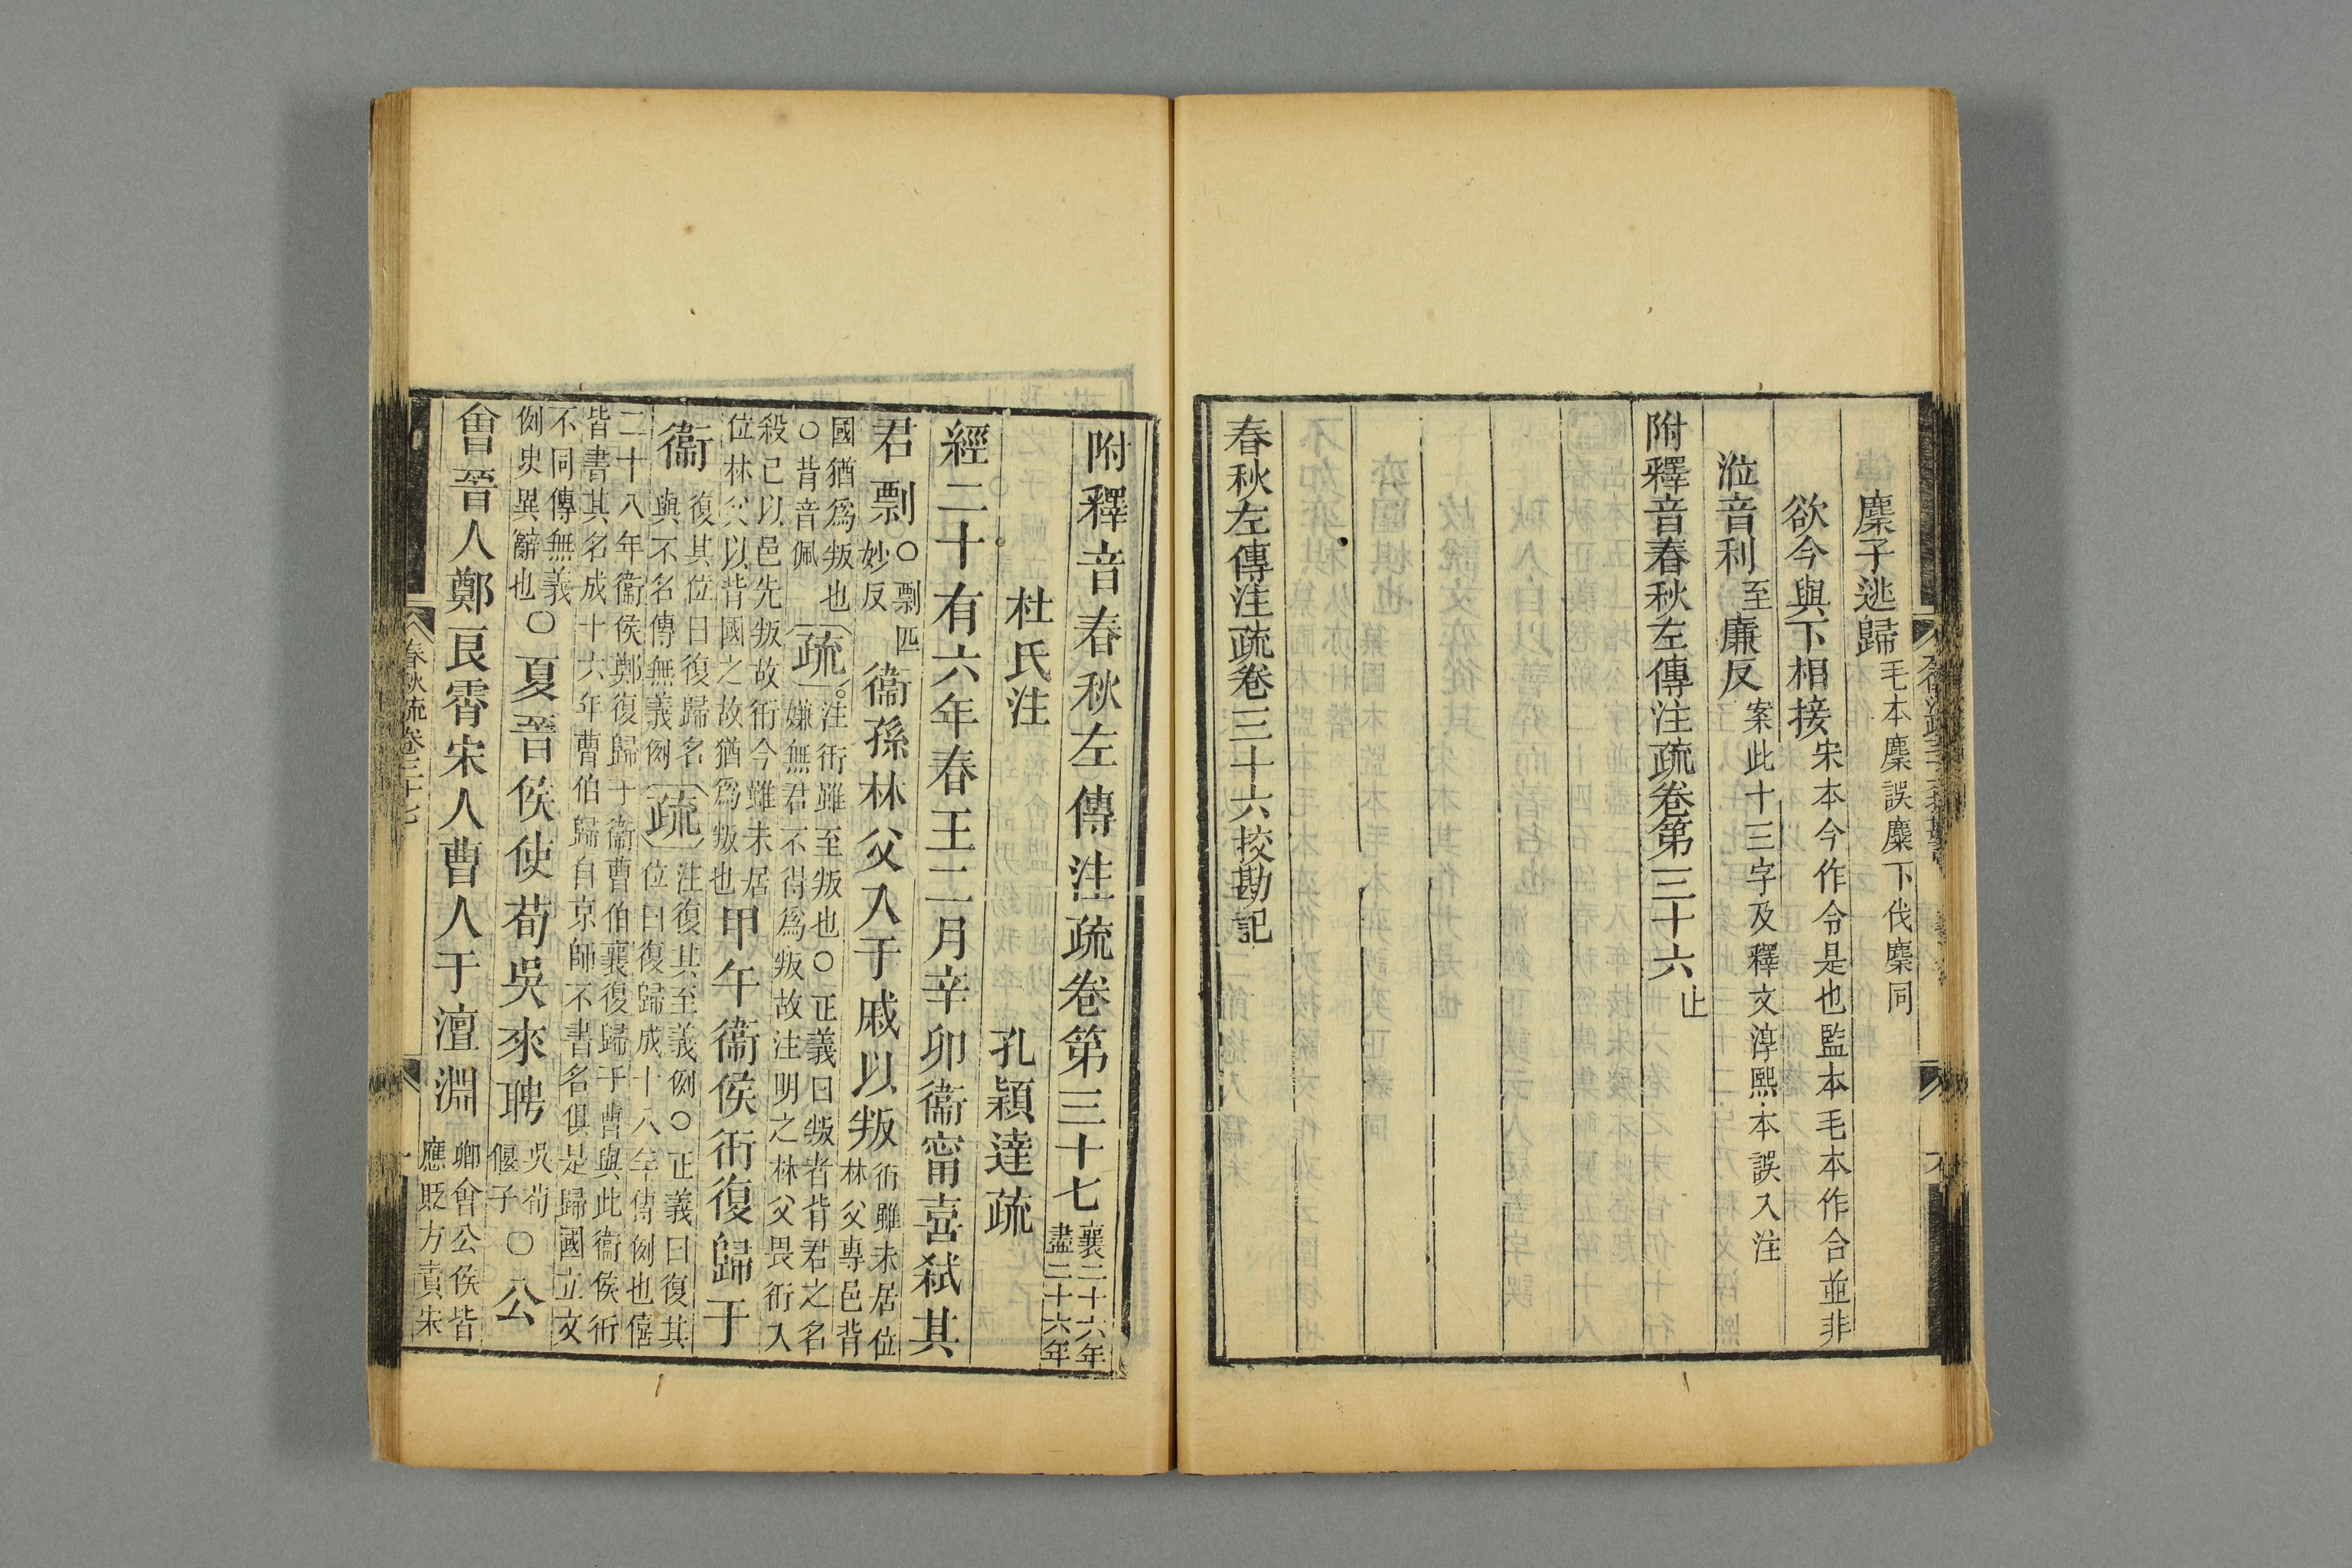 麇子逃歸毛本麇誤麋下伐麇同
欲今與下相接宋本今作令是也監本毛本作合並非
涖音利至廉反案此十三字及釋文淳熙本誤入注
附釋音春秋左傳注疏卷第三十六止
春秋左傳注疏卷三十六挍勘記
附釋音春秋左傳注疏卷第三十七襄二十六年盡二十六年
杜氏注 孔穎達疏
經二十有六年春王二月辛卯衞甯喜弑其
君剽○剽匹妙反衞孫林父入于戚以叛衎雖未居位林父專邑背
國猶爲叛也○背音佩疏注衎雖至叛也○正義曰叛者背君之名嫌無君不得爲叛故注明之林父畏衎入
殺己以邑先叛故衎今雖未居位林父以背國之故猶爲叛也甲午衞侯衎復歸于
衞復其位曰復歸名與不名傳無義例疏注復其至義例○正義曰復其位曰復歸成十八年傳例也僖
二十八年衞侯鄭復歸于衞曹伯襄復歸于曹與此衞侯衎皆書其名成十六年曹伯歸自京師不書名俱是歸國立文
不同傳無義例史異辭也○夏晉侯使荀吳來聘吳荀偃子○公
會晉人鄭良霄宋人曹人于澶淵卿會公侯皆應貶方責宋
春秋疏卷三十七